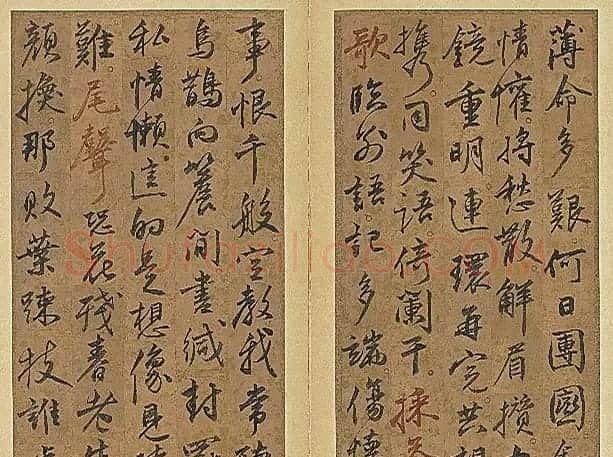 薄命多艱何日團圓
情懽將愁散解眉攢
鏡重明連環再完共
携同笑語倚闌干採
歌臨別語記多端傷
事恨千般空教我常
烏鵲向簷間書緘封
私情懶這的是想像見
難尾聲恐花殘春老
顏換那敗葉踈枝誰